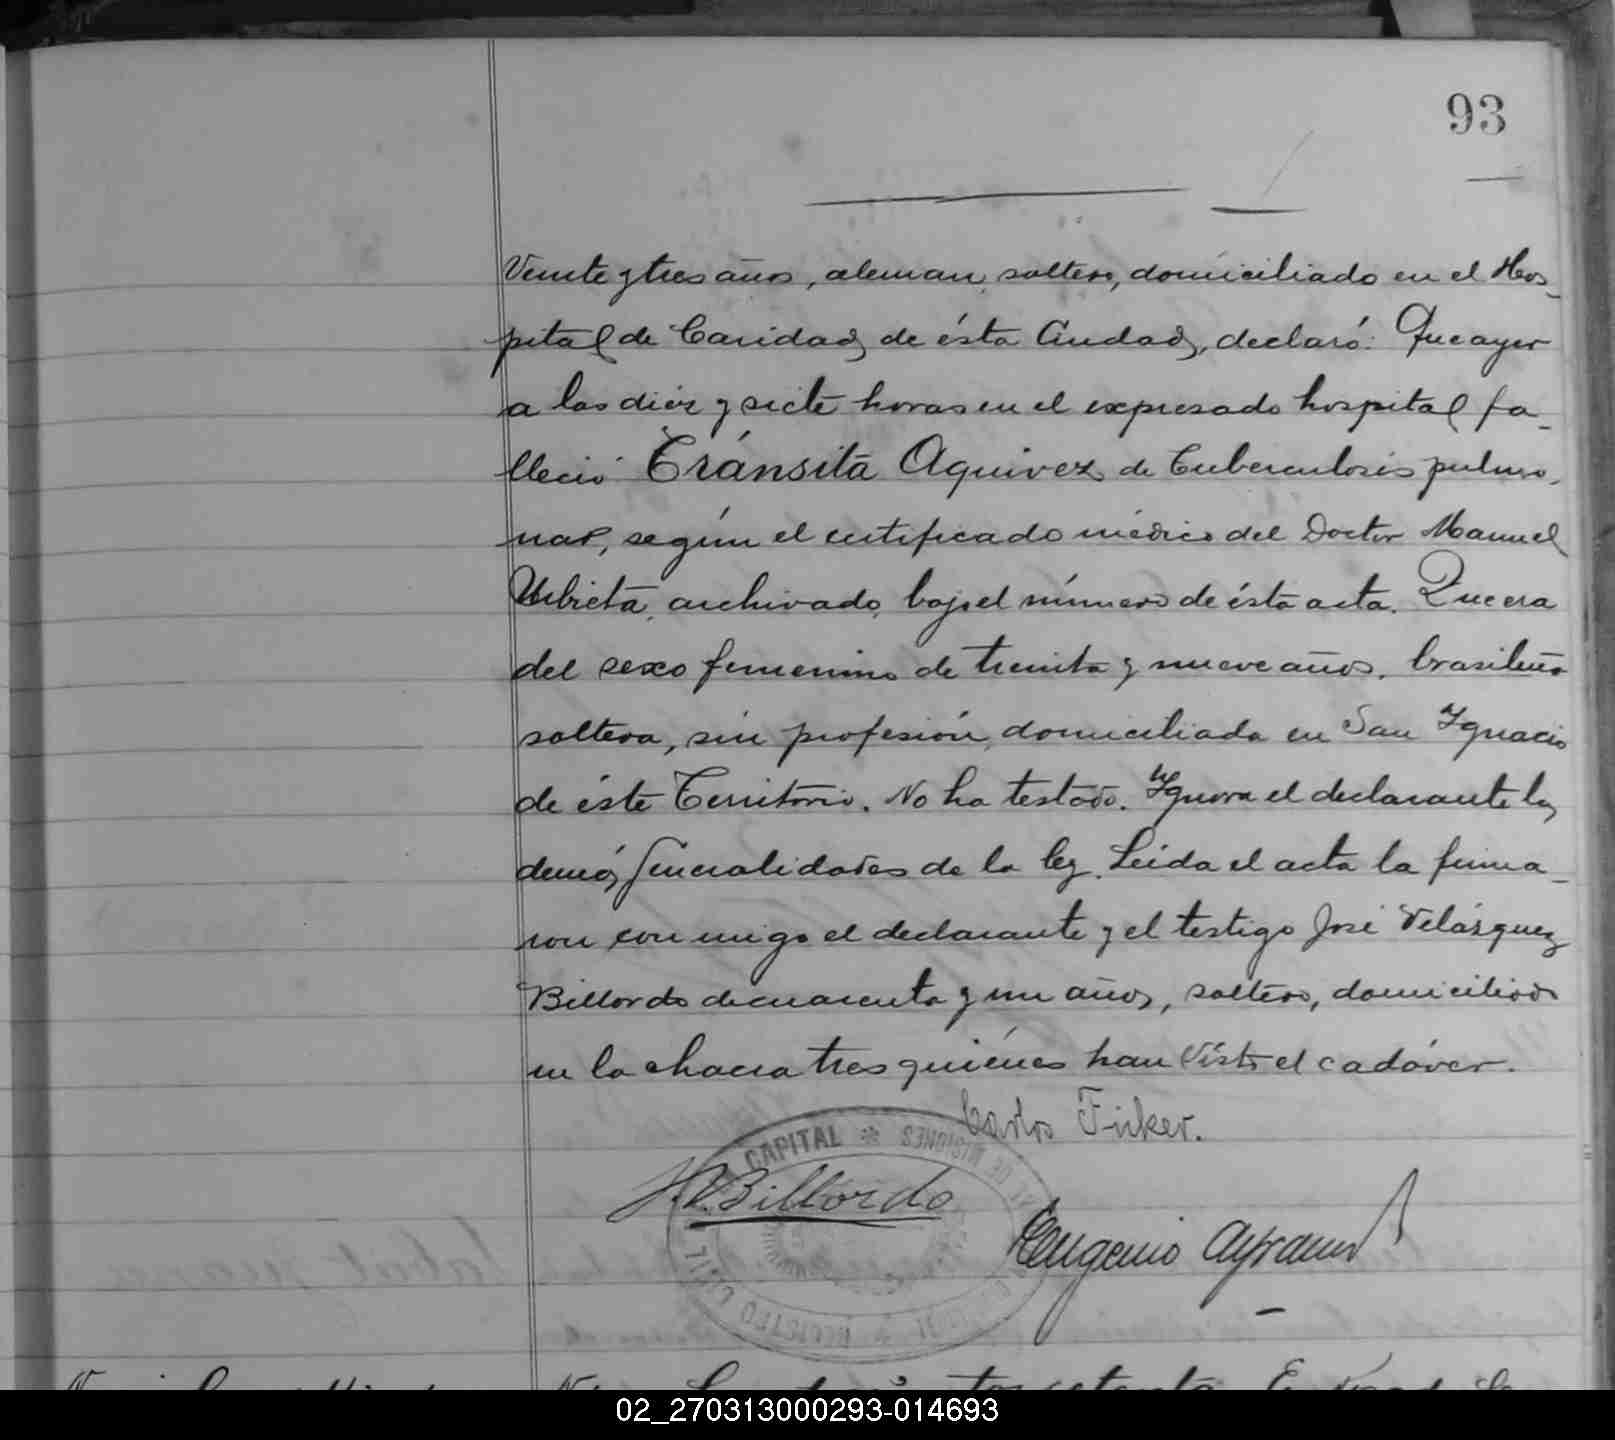 93
Veinte y tres años, aleman, soltero, domiciliado en el Hos-
pital de Caridad, de ésta Ciudad, declaró: Que ayer
a las diez y siete horas en el expresado hospital fa-
lleció Tránsita Aquivez de Tuberculosis pulmo-
nar, según el certificado médico del Doctor Manuel
Urbieta, archivado, bajo el número de ésta acta. Que era
del sexo femenino de treinta y nueve años, brasileña
soltera, sin profesión, domiciliada en San Ygnacio
de éste Territorio. No ha testado. Ygnora el declarante las
demás generalidades de la ley. Leida el acta la firma-
ron conmigo el declarante y el testigo José Velázquez
Billordo de cuarenta y un años, soltero, domiciliado
en la chacra tres quiénes han visto el cadáver.
Carlos Ficker.
CAPITAL * MISIONES
J.V. Billordo
Eugenio
REGISTRO CIVIL
02_270313000293-014693